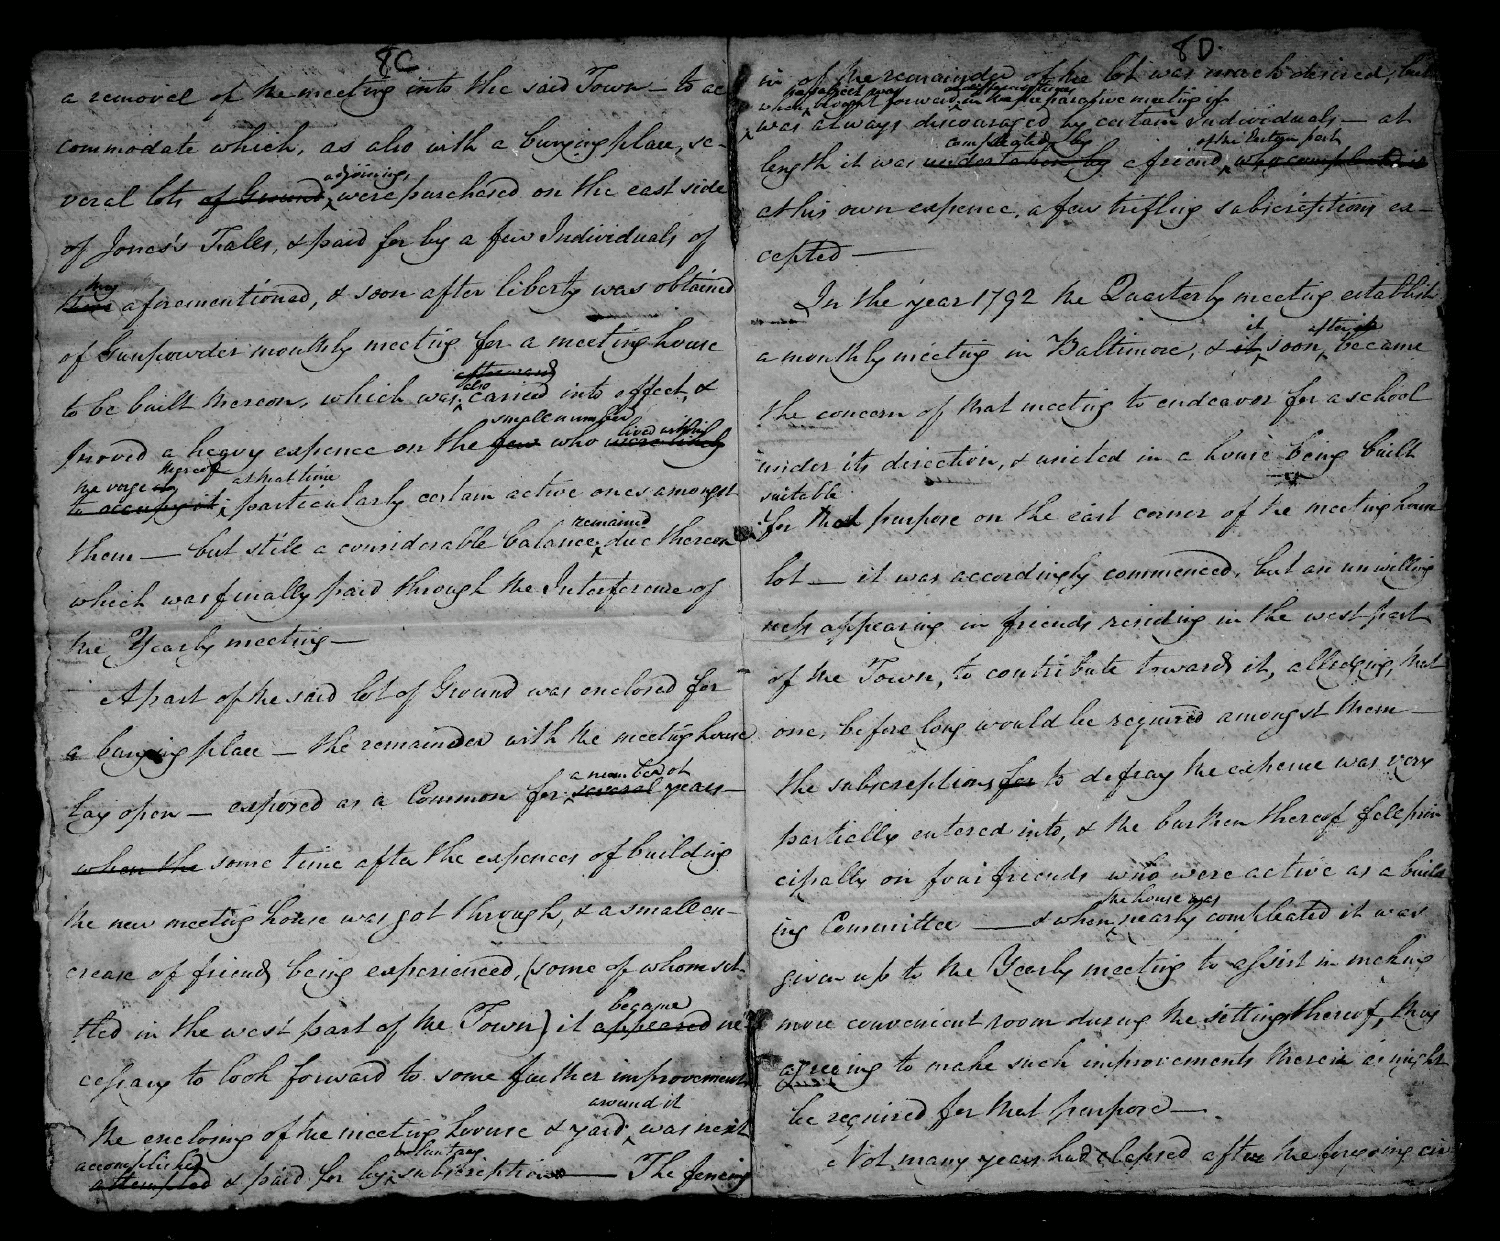 8C
a removal of the meeting into the said Town — to ac
commodate which, as also with a burying place, se-
adjoining,
veral lots of Ground were purchased on the east side
of Jones's Falls, & paid for by a few Individuals of
they
those aforementioned, & soon after liberty was obtained
of Gunpowder monthly meeting for a meeting house
afterwards
also
to be built thereon, which was carried into effect, &
small number lived within
proved a heavy expence on the few who were likely
the verge thereof at that time
to occupy it; particularly certain active ones amongst
remained
them — but still a considerable balance due thereon
which was finally paid through the Interference of
the Yearly meeting —
A part of the said lot of Ground was enclosed for
a burying place — the remainder with the meeting house
a number of
lay open — exposed as a Common for several years —
when the some time after the expences of building
the new meeting house was got through, & a small en-
crease of friends being experienced, (some of whom set-
became
tled in the west part of the Town) it appeared ne
cessary to look forward to some further improvements
around it
the enclosing of the meeting house & yard was next
accomplished voluntary
attempted & paid for by subscription — The fencing
8D.
in of the remainder of the lot was much desired, but
the subject was
when brought forward in the preparative meeting if
was always discouraged by certain Individuals — at
compleated by of the Eastern part
length it was undertaken by a friend, who compleated it
at his own expence, a few trifling subscriptions ex-
cepted —
In the year 1792 the Quarterly meeting establish
it after it
a monthly meeting in Baltimore, & it soon became
the concern of that meeting to endeavor for a school
under its direction, & united in a house being built
suitable
for that purpose on the east corner of the meeting house
lot — it was accordingly commenced, but an unwilling
ness appearing in friends residing in the west part
of the Town, to contribute towards it, alledging, that
one, before long would be required amongst them —
the subscriptions for to defray the expence was very
partially entered into, & the burthen thereof fell prin
cipally on four friends who were active as a build
the house was
ing Committee — & when nearly compleated it was
given up to the Yearly meeting to assist in making
more convenient room during the sitting thereof, they
agreeing to make such improvements therein as might
be required for that purpose —
Not many years had elapsed after the foregoing cir